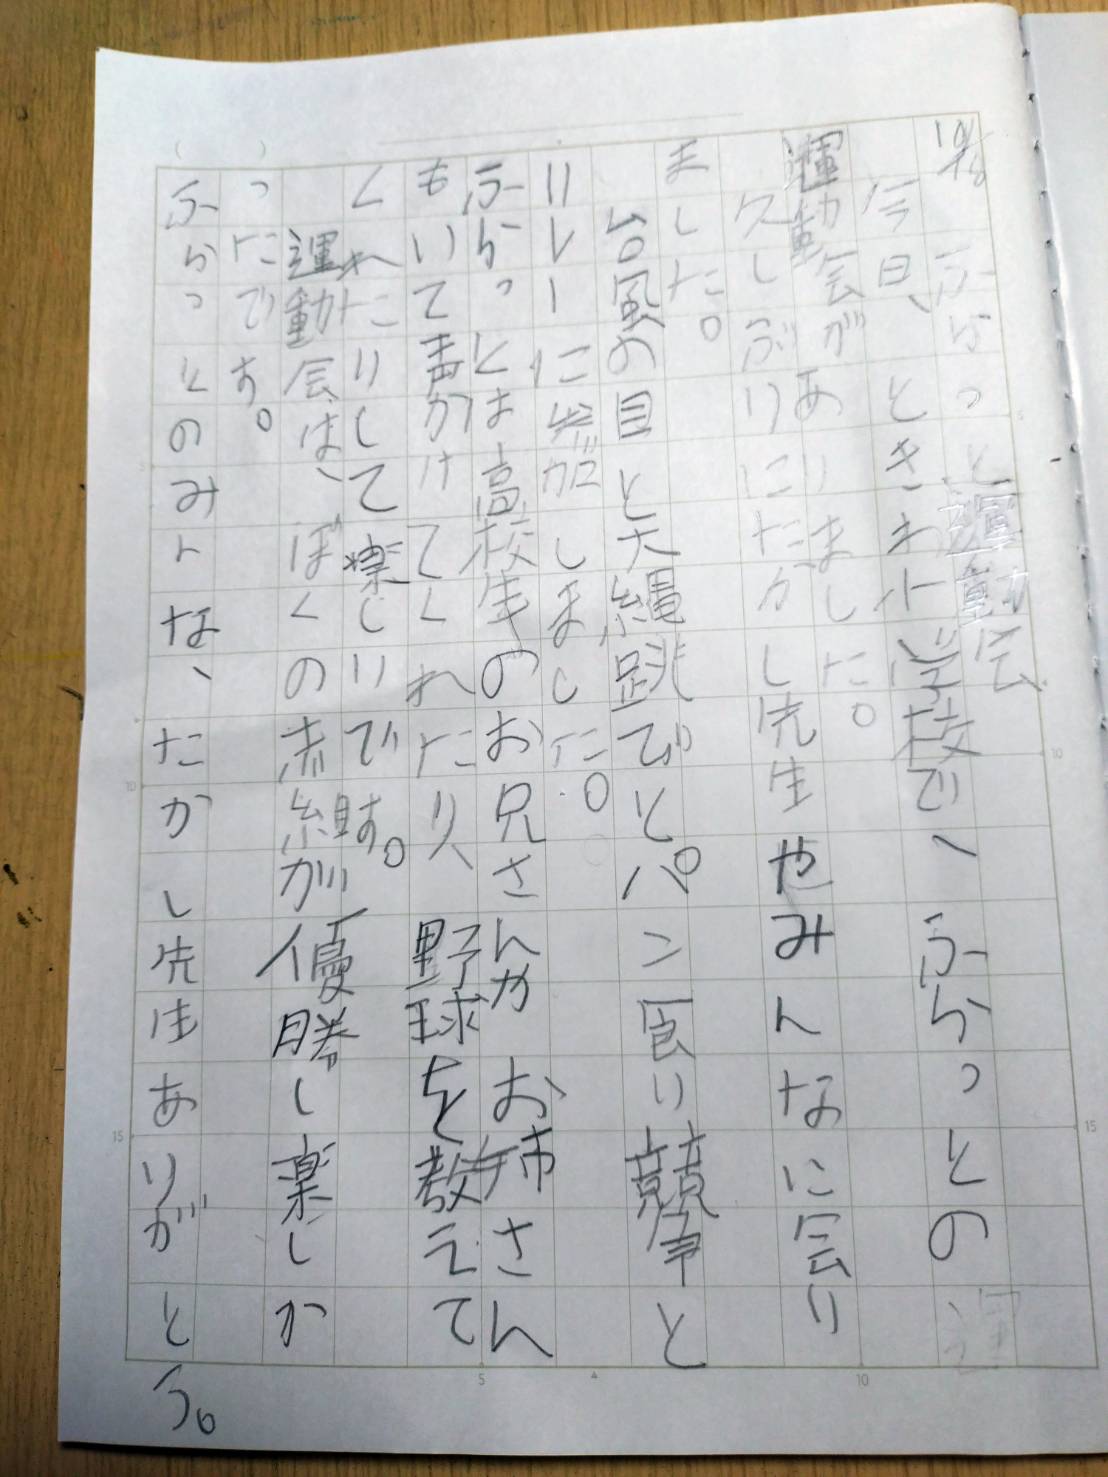 10/8 ふらっと運動会
今日、ときわ小学校で、ふらっとの
運動会がありました。
久しぶりにたかし先生やみんなに会り
ました。
台風の目と大縄跳びとパン食り競争と
リレーに参加しました。
ふらっとは高校生のお兄さんかお姉さん
もいて声かけてくれたり、野球を教えて
くれたりして楽しいです。
運動会は、ぼくの赤組が優勝し楽しか
ったです。
ふらっとのみんな、たかし先生ありがとう。